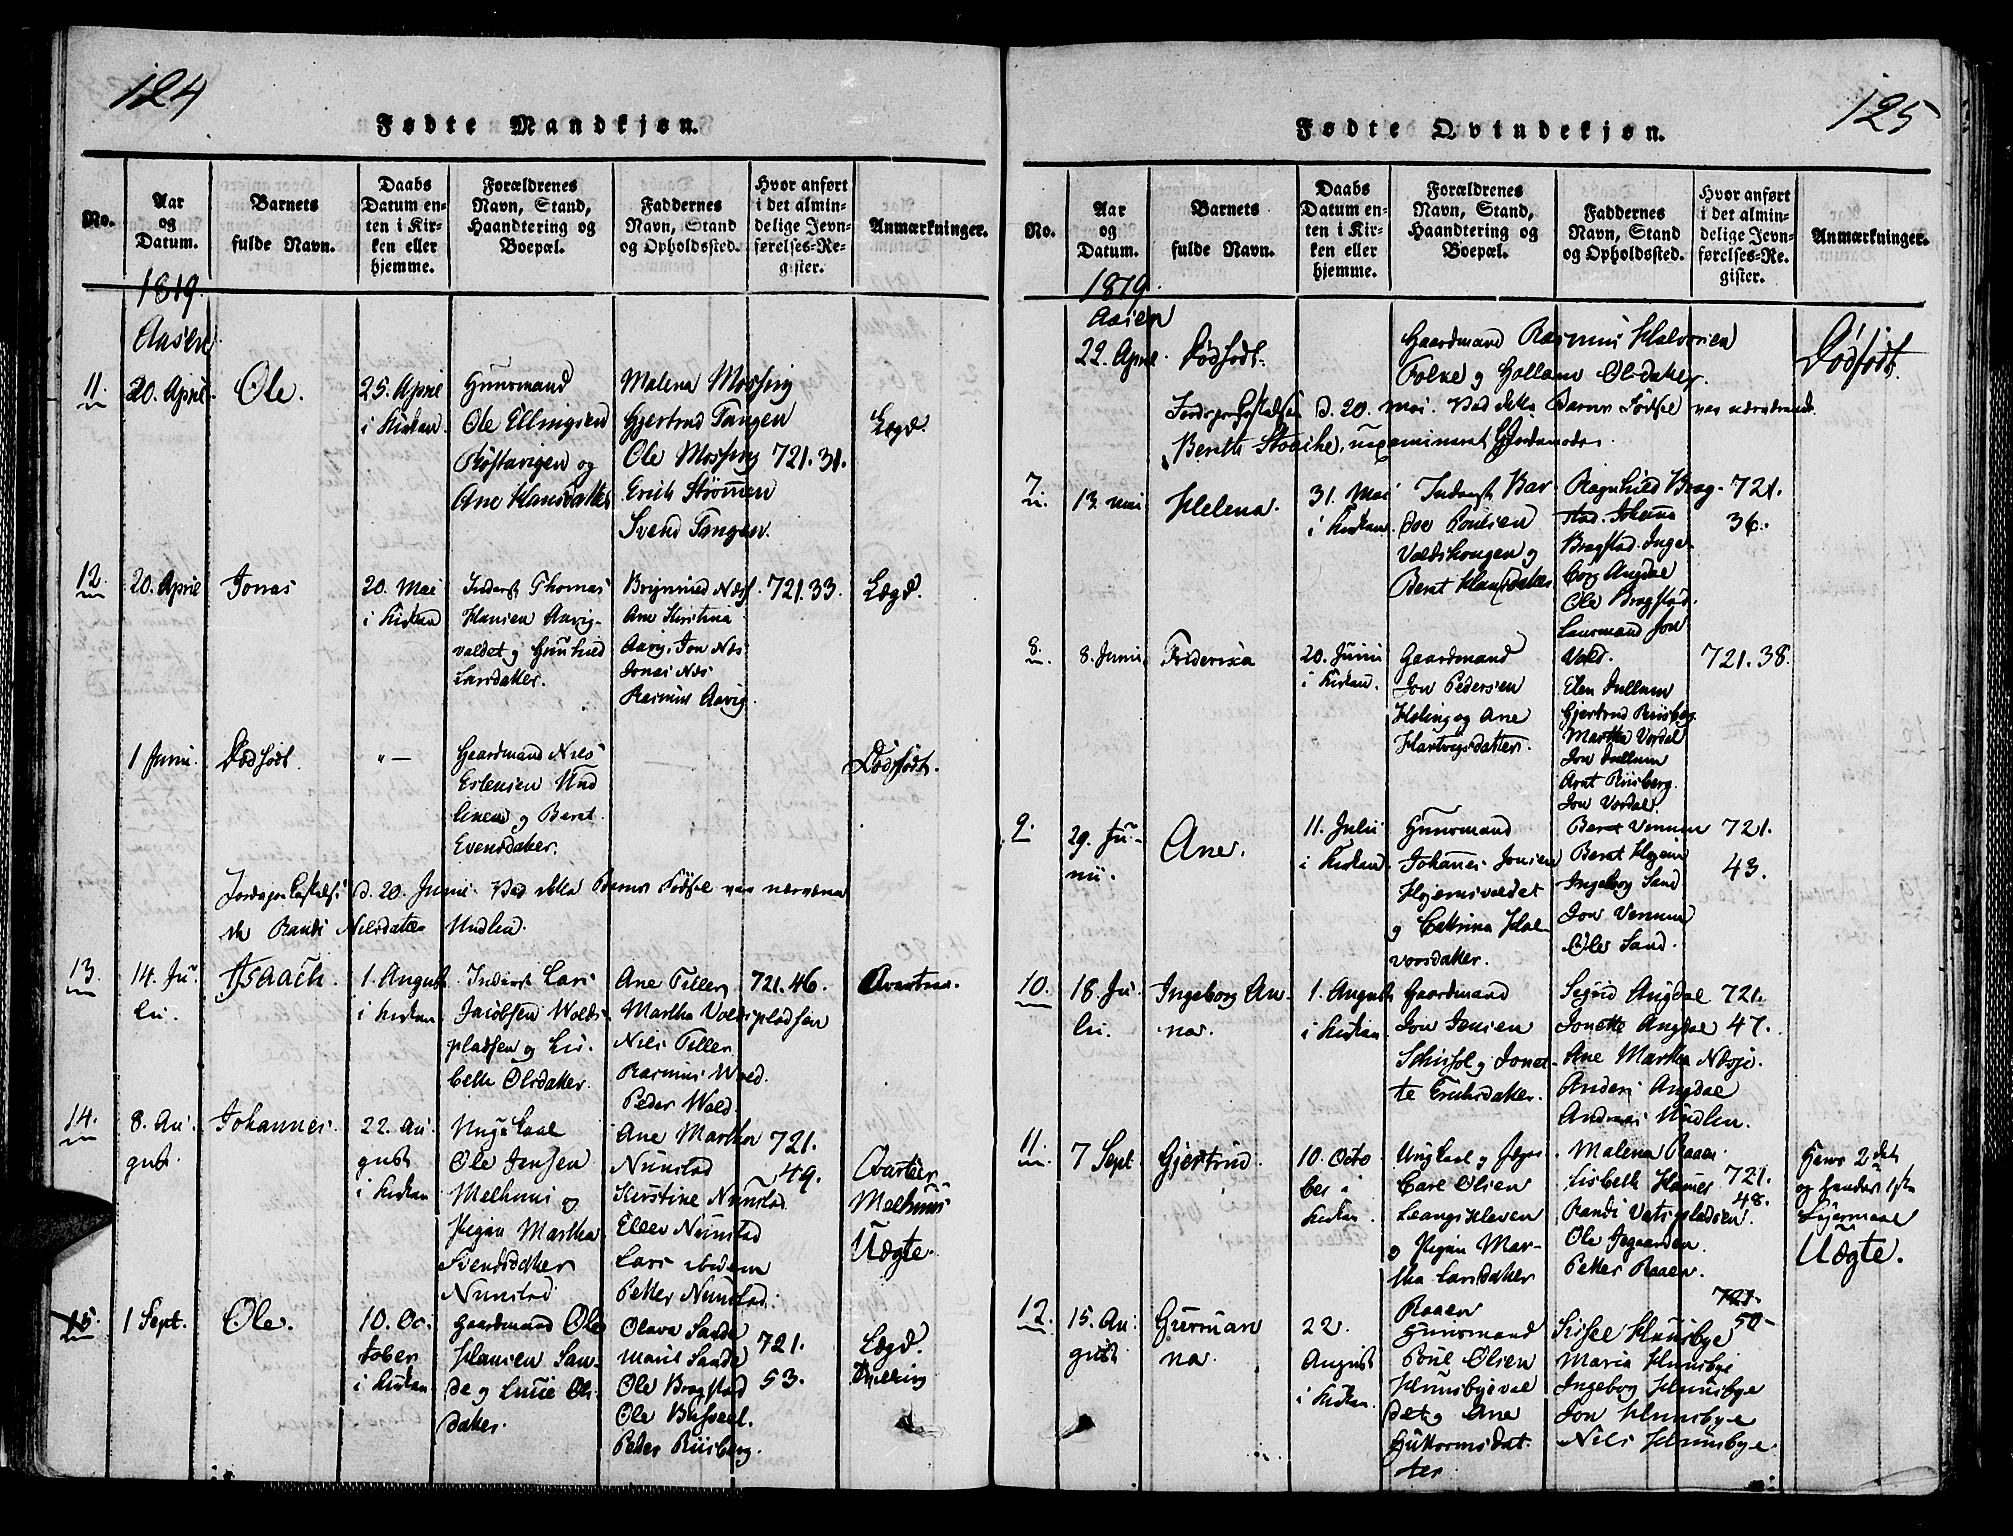 124
Fødte Mandkjøn.
No.
Aar
og
Datum.
Barnets
fulde Navn.
Daabs
Datum en-
ten i Kir-
ken eller
hjemme.
Forældrenes
Navn, Stand,
Haandtering og
Boepæl.
Faddernes
Navn, Stand
og Opholdssted.
Hvor anført
i det almin-
delige Jevn-
førelses-Re-
gister.
Anmærkninger.
1819.
Aasen
11
20. April
Ole.
25. April
i Kirken.
Huusmand
Ole Ellingsen
og
Ane Hansdatter
Malena Mossing
Gjertrud Tangen
Ole Mossing
Erich Strømen
Svend Tangen.
721. 31.
Lægd.
12.
20. April
Jonas
20. Mai
i Kirken
Inderst Thomas
Hansen Aavig-
valdet og Gunhild
Larsdatter.
Næss
Ane Kirstina
Aavig, Jon Næs
Jonas Næs
Rasmus Aavig
721. 33.
Lægd.
1 Junii.
Dødfødt
" —
Gaardmand Niels
Estensen Und
linen og Beret
Evensdatter.
Dødfødt.
Jordspaakastelse d. 20. Junii. Ved dette Barns Fødsel var nærværen
de Randi Nilsdatter Undlin.
13.
14. Ju-
lii.
Isaach.
1. August
i Kirken
Inderst Lars
Jacobsen Wolds-
pladsen og Lis-
beth Olsdatter.
Ane Tiller
Martha Voldspladsen
Nils Tiller
Rasmus Wold.
Peder Wold.
721. 46.
14.
8. Au-
gust.
Johannes.
22. Au-
gust
i Kirken
Ungkarl
Ole Jensen
Melhuus og
Pigen Martha
Svendsdatter
Nunstad
Ane Martha
Nunstad
Kirstine Nunstad
Ellev Nunstad
Lars ibidem
Petter Nunstad.
721.
49.
Melhuus
Uægte.
15.
1 Sept.
Ole.
10. Oc-
tober
i Kirken
Gaardmand Ole
Hansen San-
de og Lucie Ols-
datter.
Olava Sande
Marit Sande
Ole Bragstad
Ole
Peder Riisberg.
721.
53.
Lægd.
125
Fødte Qvindekjøn.
No.
Aar
og
Datum.
Barnets
fulde Navn.
Daabs
Datum en-
ten i Kir-
ken eller
hjemme.
Forældrenes
Navn, Stand,
Haandtering og
Boepæl.
Faddernes
Navn, Stand
og Opholdssted.
Hvor anført
i det almin-
delige Jevn-
førelses-Re-
gister.
Anmærkninger.
1819.
Aasen
22. April.
Dødfødt.
Gaardmand Rasmus Halvorsen
og Olsdatter.
Dødfødt.
Jordspaakastelsen d. 20. Mai. Ved dette Barns Fødsel var nærværende
Bereth uexamineret Gjordemoder.
7.
13. Mai
Helena.
31. Mai
i Kirken.
Inderst Bar-
doe Poulsen
Valdshougen og
Beret Hansdatter
Ragnhild Brag-
stad. Johanna
Bragstad. Inge-
borg Angdal
Ole Bragstad.
Lansmand Jon
Vold.
721.
36.
8.
8. Junii
Friderica
20. Junii
i Kirken.
Gaardmand
Jon Pedersen
Høling og Ane
Hartvigsdatter.
Elen Jullum
Gjertrud Riisberg
Martha Vordal
Jon Jullum
Arnt Riisberg.
Jon Vordal.
721. 38.
9.
29. Ju-
nii.
Ane.
11. Julii
i Kirken
Huusmand
Johannes Jonsen
Hojemsvaldet
og Cathrina Hal-
vorsdatter.
Beret Vennum
Beret Hojem
Ingeborg Sand
Jon Vennum
Ole Sand.
721.
43.
10.
18. Ju-
lii.
Ingeborg An-
na.
1. August
i Kirken
Gaardmand
Jon Jensen
og Jonet-
te Erichsdatter.
Sigrid Angdal
Jonette Angdal
Ane Martha Næsje.
Anders Angdal
Andreas Undlen.
721.
47.
11.
7 Sept
Gjertrud.
10. Octo
ber i
Kirken.
Ungkarl og
Carl Olsen
Leangskleven
o Pigen Mar-
tha Larsdatter
Raaen
Malena Raaen
Lisbeth
Randi
Ole
Petter Raaen.
721.
48.
Hans 2det
og hendes 1ste
Leiermaal
Uægte.
12.
15. Au-
gust
Gurrian
na.
22.
August
i Kirken.
Huusmand
Poul Olsen
Huusbyeval
det og Ane
Guttormsdat-
ter
Sissel Huusbye
Maria Huusbye
Ingeborg Huusbye
Jon Huusbye
Nils Huusbye.
721.
50